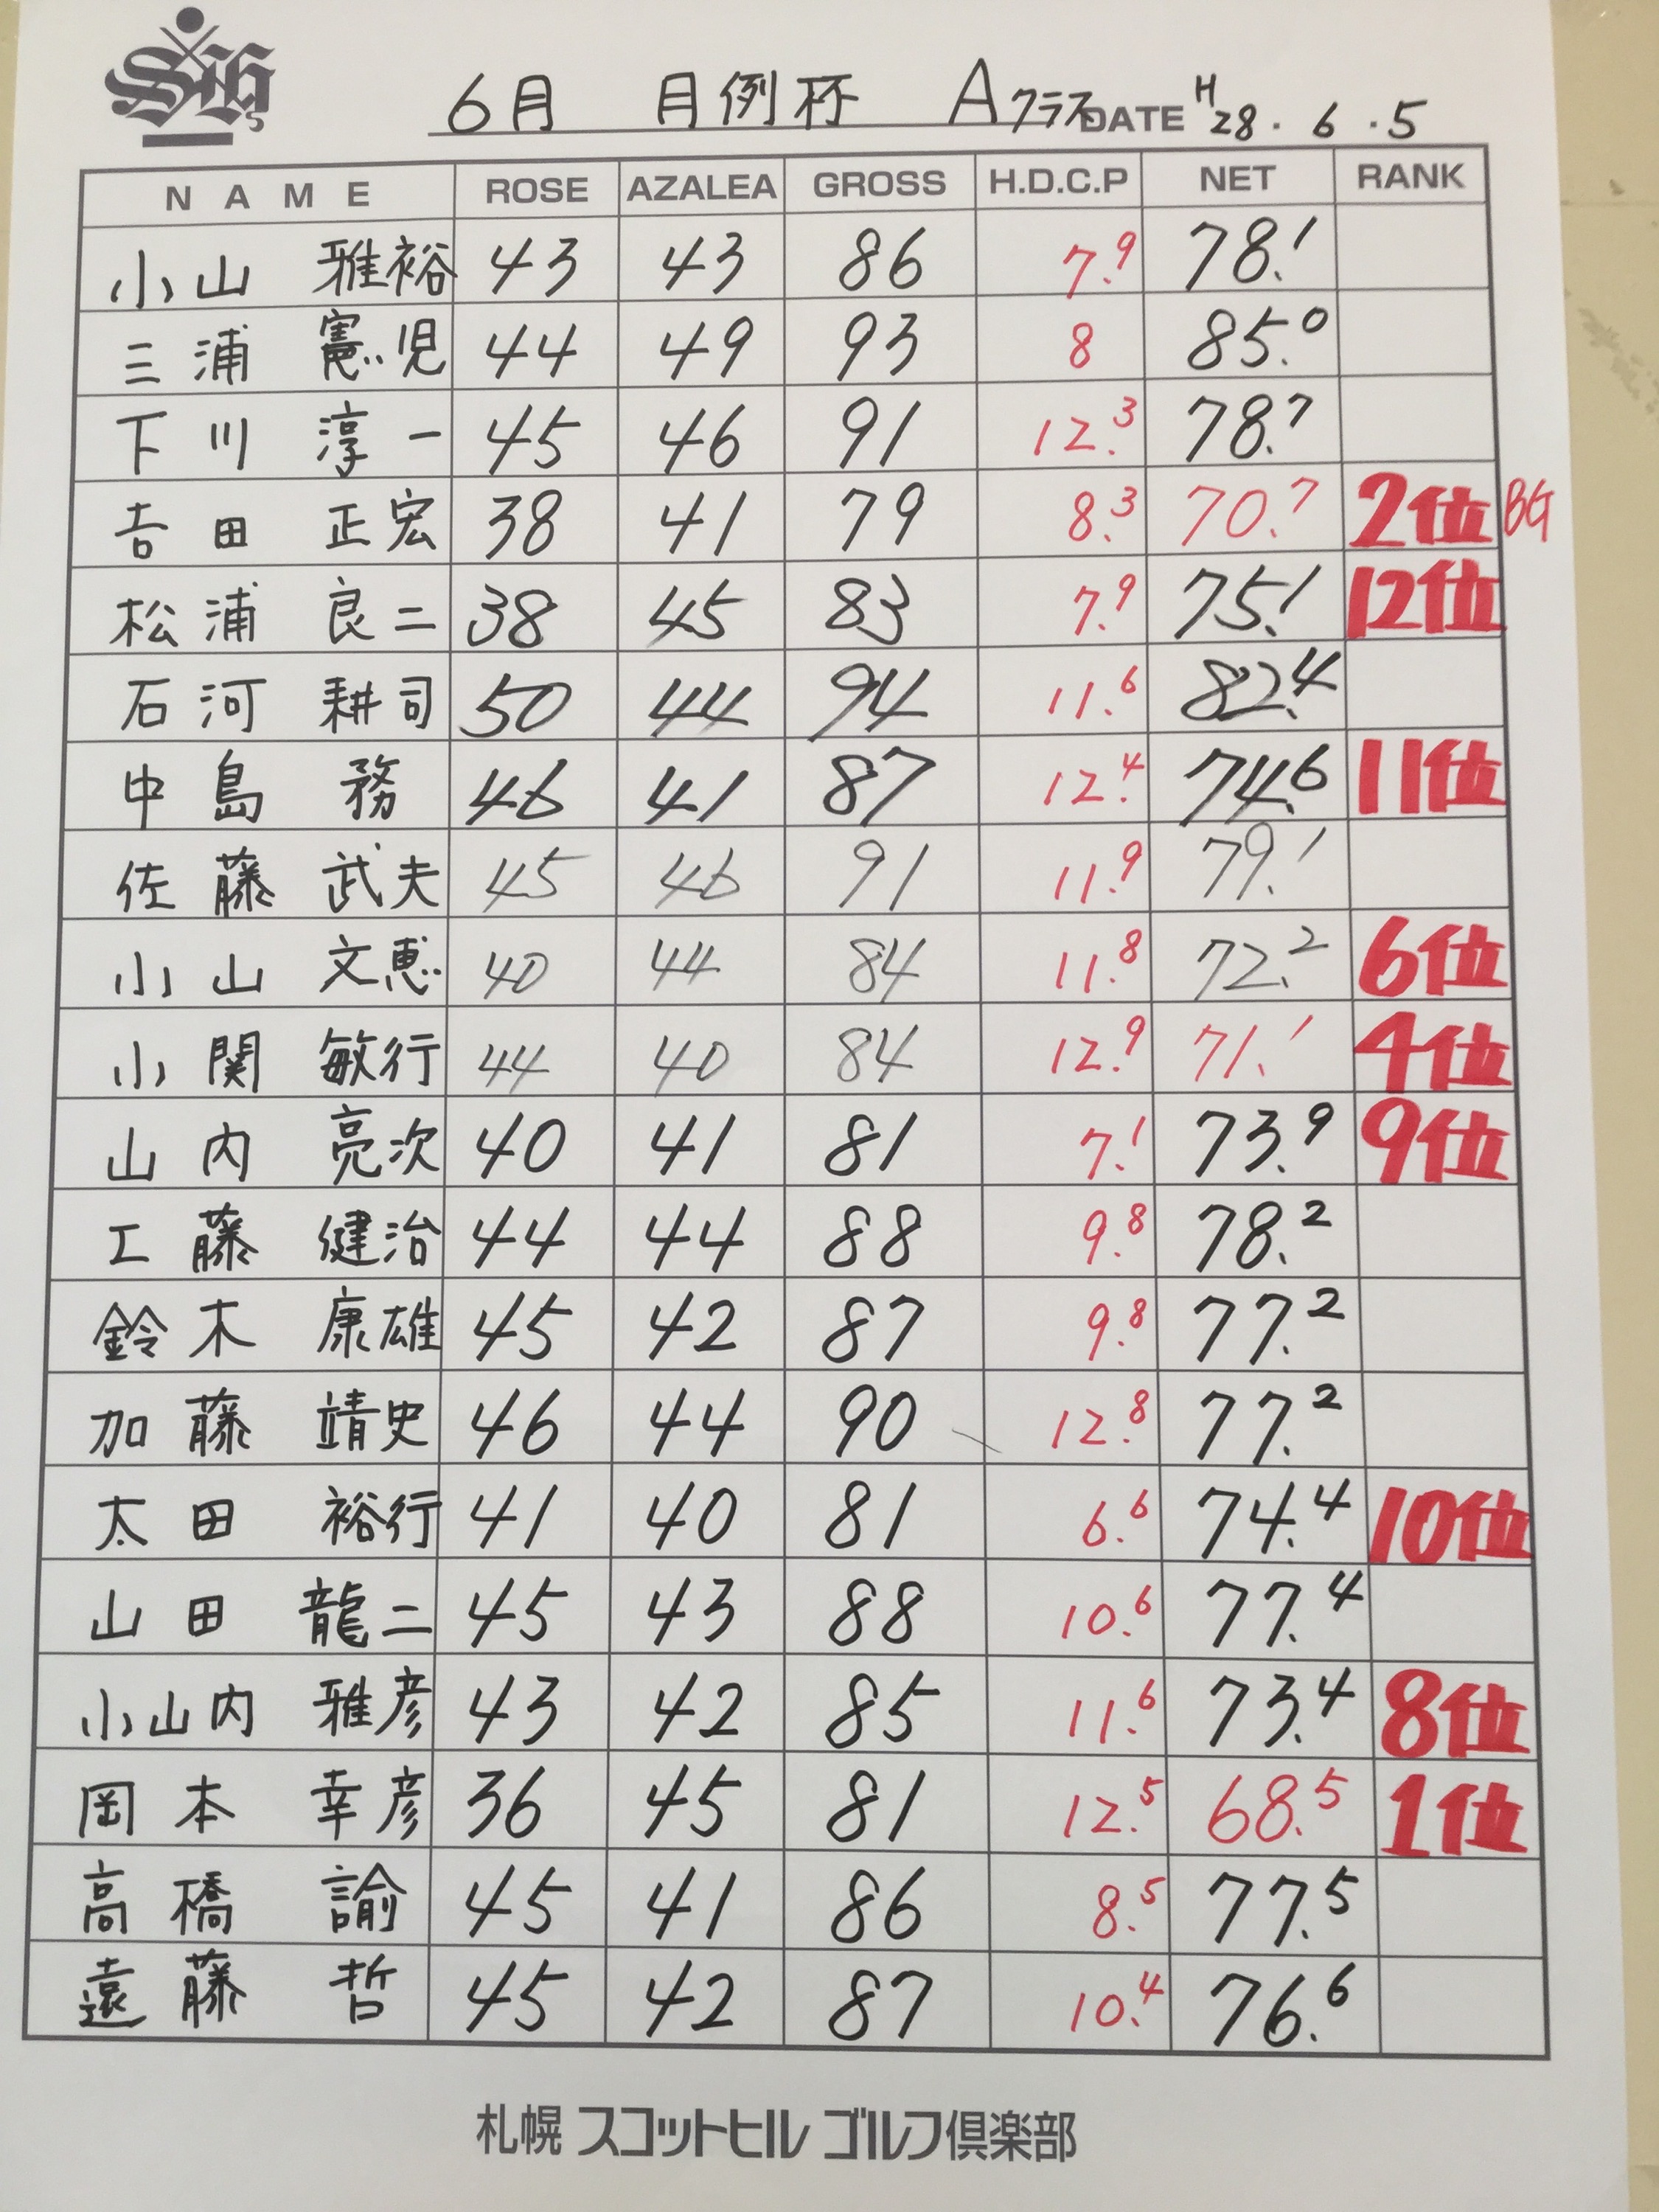 6月 月例杯 Aクラス DATE H28.6.5
NAME ROSE AZALEA GROSS H.D.C.P NET RANK
小山 雅裕 43 43 86 7.9 78.1
三浦 憲児 44 49 93 8 85.0
下川 淳一 45 46 91 12.3 78.7
吉田 正宏 38 41 79 8.3 70.7 2位 BG
松浦 良二 38 45 83 7.9 75.1 12位
石河 耕司 50 44 94 11.6 82.4
中島 務 46 41 87 12.4 74.6 11位
佐藤 武夫 45 46 91 11.9 79.1
小山 文恵 40 44 84 11.8 72.2 6位
小関 敏行 44 40 84 12.9 71.1 4位
山内 亮次 40 41 81 7.1 73.9 9位
工藤 健治 44 44 88 9.8 78.2
鈴木 康雄 45 42 87 9.8 77.2
加藤 靖史 46 44 90 12.8 77.2
太田 裕行 41 40 81 6.6 74.4 10位
山田 龍二 45 43 88 10.6 77.4
小山内 雅彦 43 42 85 11.6 73.4 8位
岡本 幸彦 36 45 81 12.5 68.5 1位
高橋 諭 45 41 86 8.5 77.5
遠藤 哲 45 42 87 10.4 76.6
札幌 スコットヒル ゴルフ倶楽部